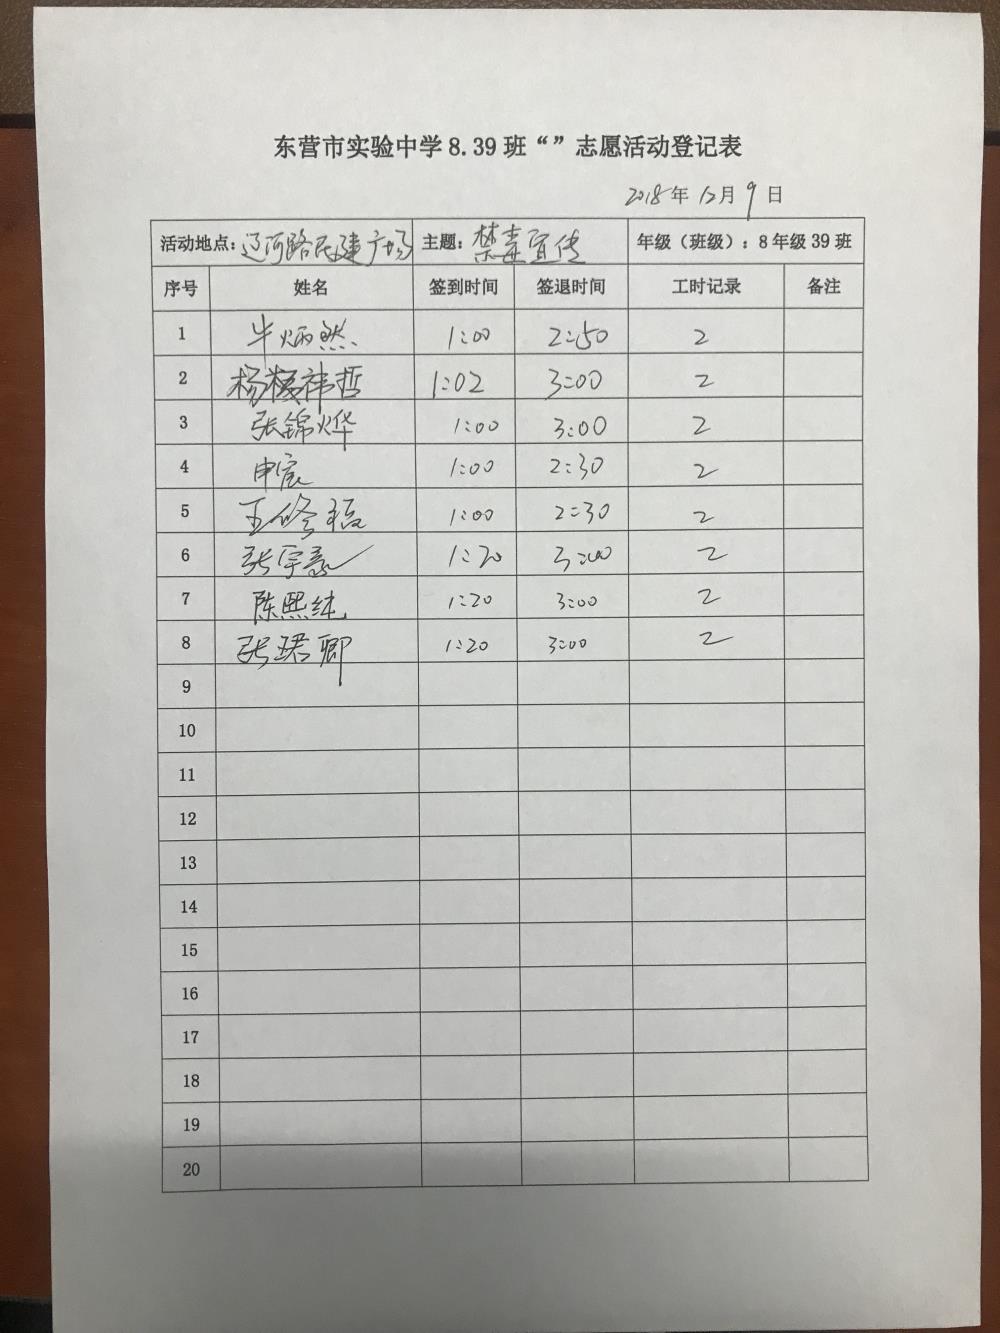 东营市实验中学8.39班“”志愿活动登记表
2018年12月9日
活动地点：辽河路民建广场 主题：禁毒宣传 年级（班级）：8年级39班
序号 姓名 签到时间 签退时间 工时记录 备注
1 牛炳然 1:00 2:50 2
2 杨祎哲 1:02 3:00 2
3 张锦烨 1:00 3:00 2
4 申宸 1:00 2:30 2
5 王修 1:00 2:30 2
6 张宇 1:20 3:00 2
7 陈熙纯 1:20 3:00 2
8 张珺卿 1:20 3:00 2
9
10
11
12
13
14
15
16
17
18
19
20